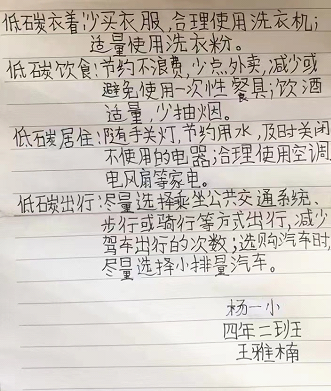 低碳衣着:少买衣服,合理使用洗衣机;
适量使用洗衣粉。
低碳饮食:节约不浪费,少点外卖,减少或
避免使用一次性餐具;饮酒
适量,少抽烟。
低碳居住:随手关灯,节约用水,及时关闭
不使用的电器;合理使用空调
电风扇等家电。
低碳出行:尽量选择乘坐公共交通系统、
步行或骑行等方式出行,减少
驾车出行的次数;选购汽车时,
尽量选择小排量汽车。
杨一小
四年二班
王雅楠